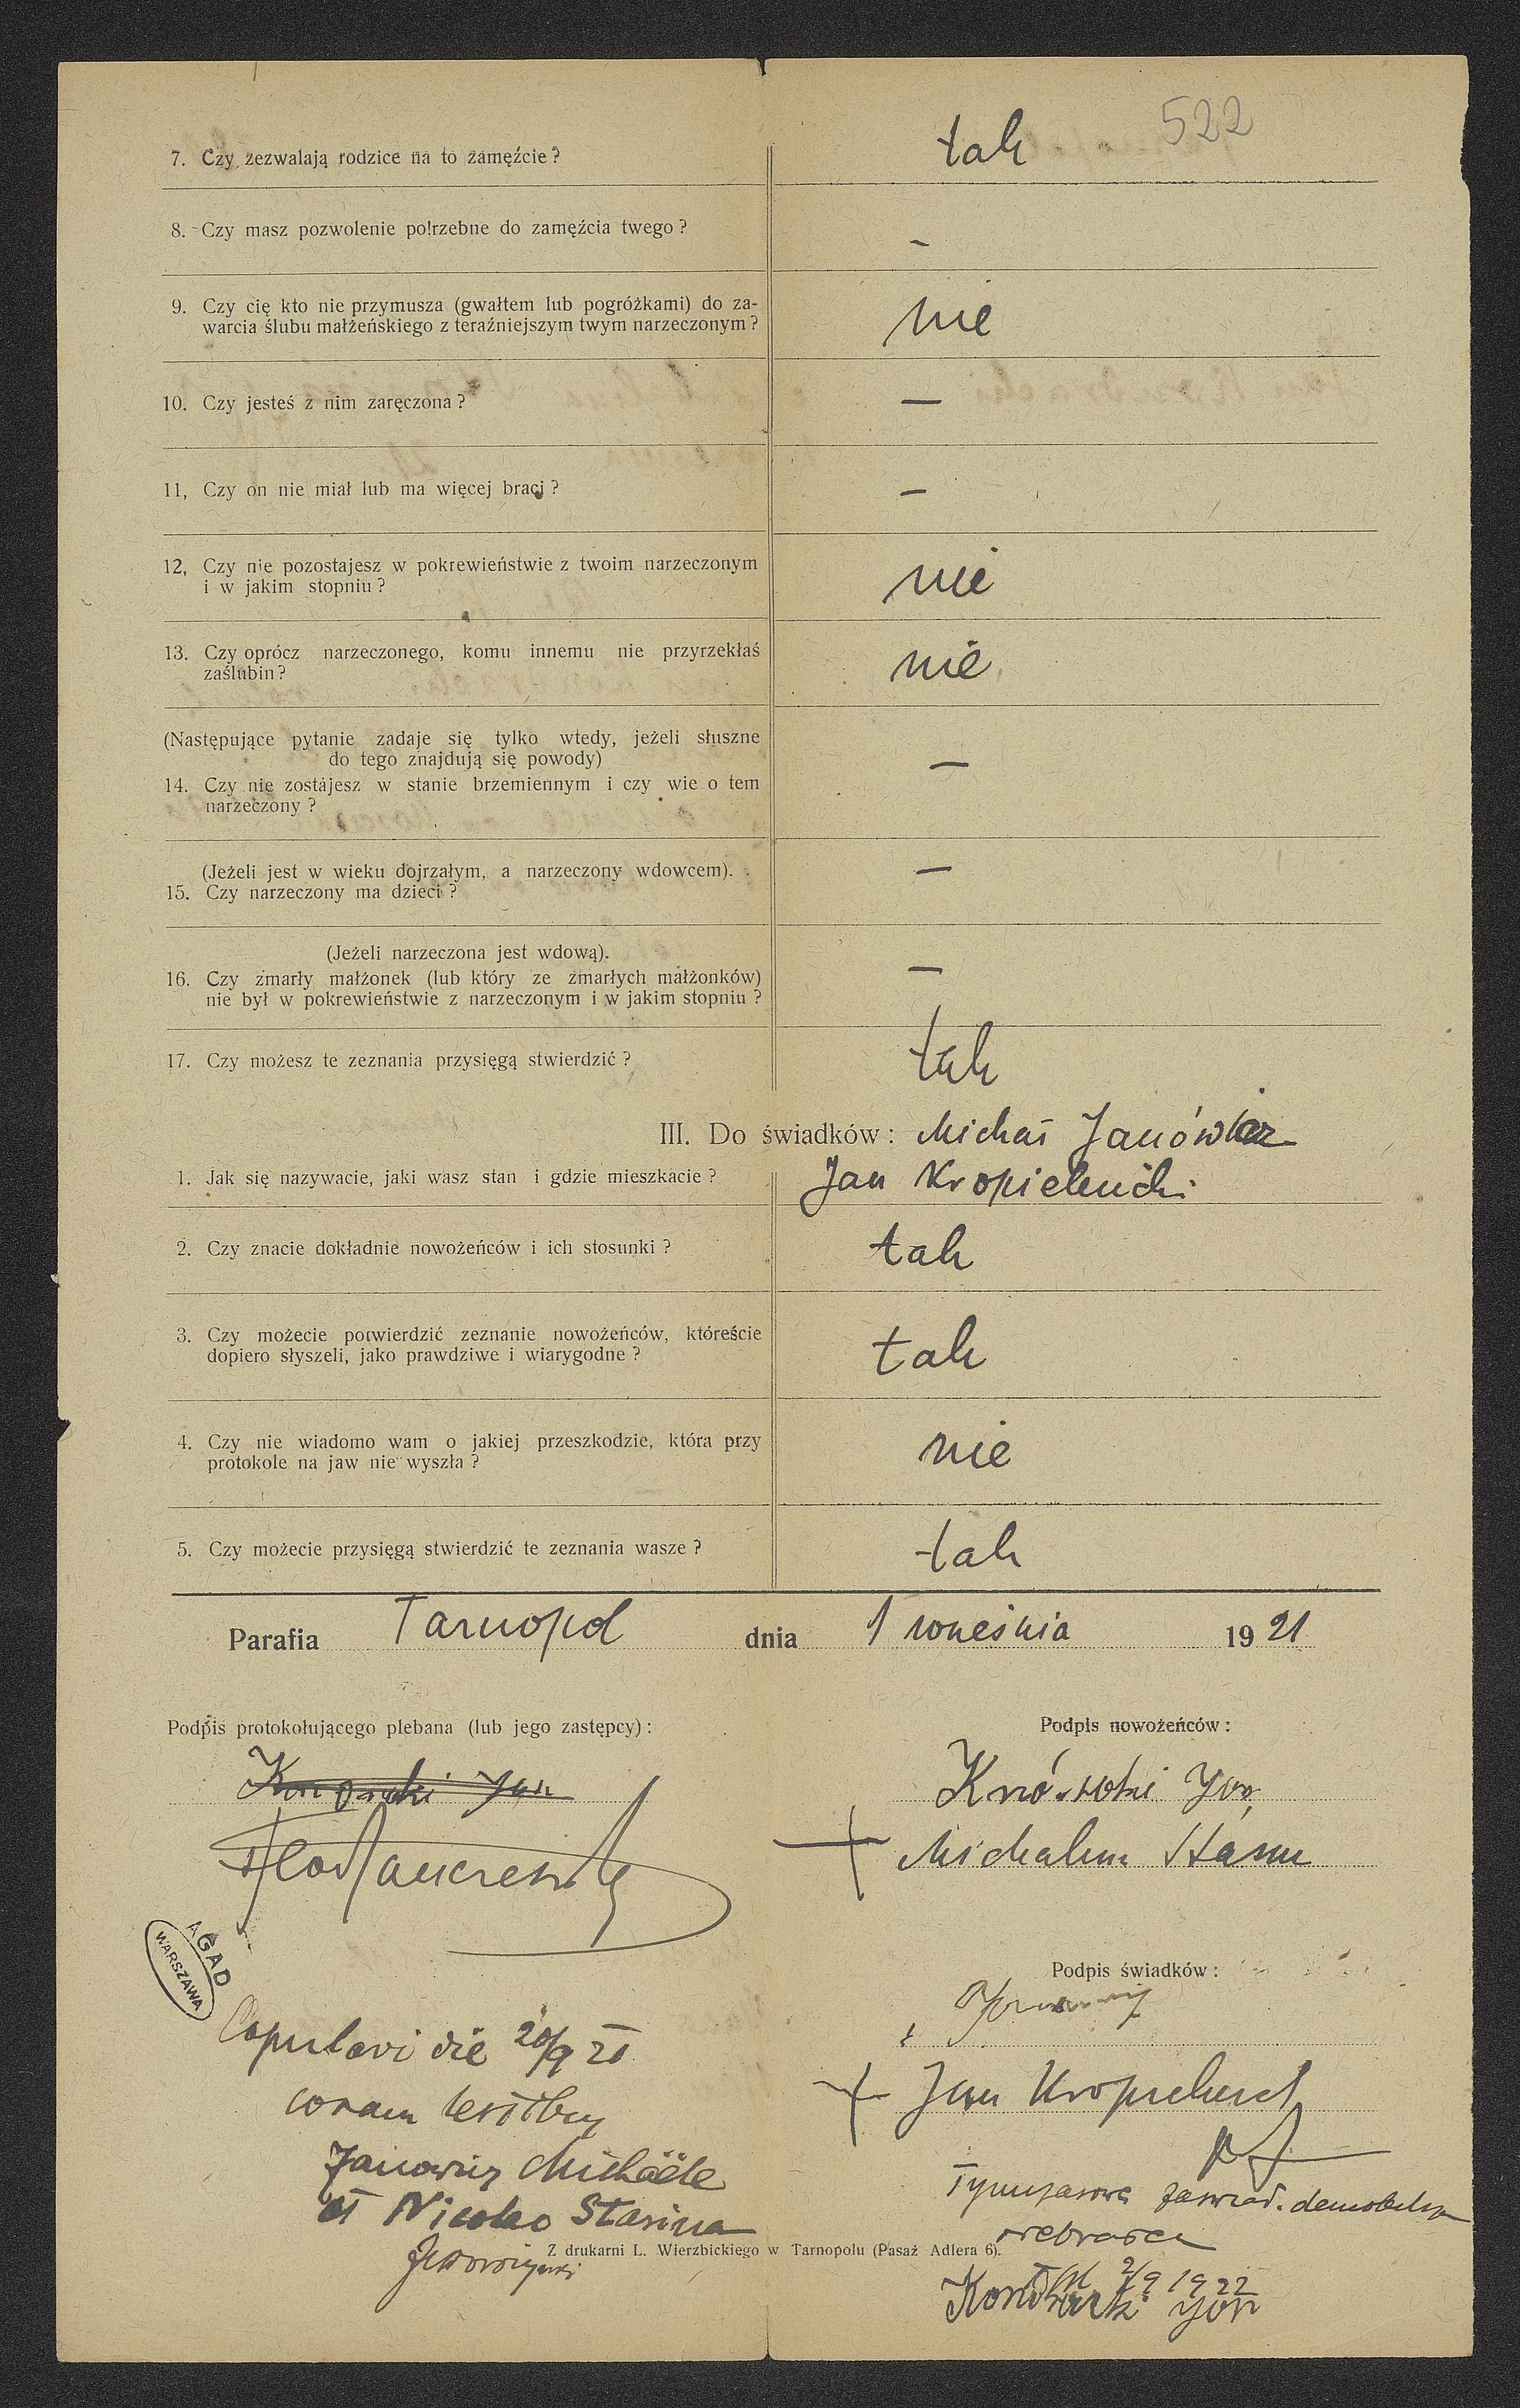 522
7. Czy zezwalają rodzice na to zamęźcie? tak
8. Czy masz pozwolenie potrzebne do zamęźcia twego? –
9. Czy cię kto nie przymusza (gwałtem lub pogróżkami) do za-
warcia ślubu małżeńskiego z teraźniejszym twym narzeczonym? nie
10. Czy jesteś z nim zaręczona? —
11, Czy on nie miał lub ma więcej braci? —
12, Czy nie pozostajesz w pokrewieństwie z twoim narzeczonym
i w jakim stopniu? nie
13. Czy oprócz narzeczonego, komu innemu nie przyrzekłaś
zaślubin? nie
(Następujące pytanie zadaje się tylko wtedy, jeżeli słuszne
do tego znajdują się powody) —
14. Czy nie zostájesz w stanie brzemiennym i czy wie o tem
narzeczony?
(Jeżeli jest w wieku dojrzałym, a narzeczony wdowcem). —
15. Czy narzeczony ma dzieci?
(Jeżeli narzeczona jest wdową).
16. Czy zmarły małżonek (lub który ze zmarłych małżonków) —
nie był w pokrewieństwie z narzeczonym i w jakim stopniu?
17. Czy możesz te zeznania przysięgą stwierdzić? tak
III. Do świadków: Michał
1. Jak się nazywacie, jaki wasz stan i gdzie mieszkacie? Jan Kropielnicki
2. Czy znacie dokładnie nowożeńców i ich stosunki? tak
3. Czy możecie potwierdzić zeznanie nowożeńców, któreście
dopiero słyszeli, jako prawdziwe i wiarygodne? tak
4. Czy nie wiadomo wam o jakiej przeszkodzie, która przy
protokole na jaw nie wyszła? nie
5. Czy możecie przysięgą stwierdzić te zeznania wasze? tak
Parafia Tarnopol dnia 1 września 1921
Podpis protokołującego plebana (lub jego zastępcy): Podpis nowożeńców:
Podpis świadków:
Jan
AGAD
WARSZAWA
Copulavi die 20/9 21
coram testibus
Michaële
et Nicolao Stasina
Z drukarni L. Wierzbickiego w Tarnopolu (Pasaż Adlera 6).
2/9 1922